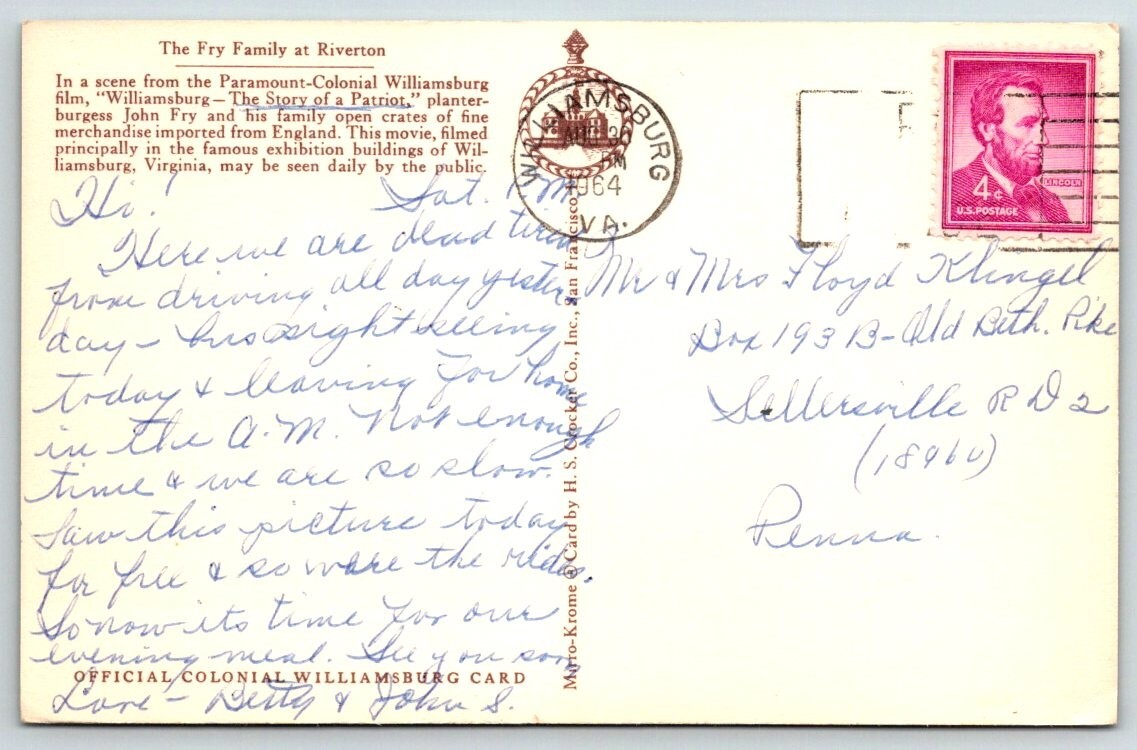 The Fry Family at Riverton
In a scene from the Paramount-Colonial Williamsburg
film, "Williamsburg—The Story of a Patriot," planter-
burgess John Fry and his family open crates of fine
merchandise imported from England. This movie, filmed
principally in the famous exhibition buildings of Wil-
liamsburg, Virginia, may be seen daily by the public.
Hi! Sat. PM
Here we are dead tired
from driving all day yester
day - bus sightseeing
today & leaving for home
in the A.M. Not enough
time & we are so slow.
Saw this picture today
for free & so were the rides.
So now its time for our
evening meal. See you soon
Love - Betty & John S.
OFFICIAL COLONIAL WILLIAMSBURG CARD
Mirro-Krome ® Card by H. S. Crocker Co., Inc., San Francisco
WILLIAMSBURG
PM
1964
VA.
4¢
LINCOLN
U.S. POSTAGE
Mr & Mrs Floyd Klingel
Box 193 B - Old Beth. Pike
Sellersville R D 2
(18960)
Penna.